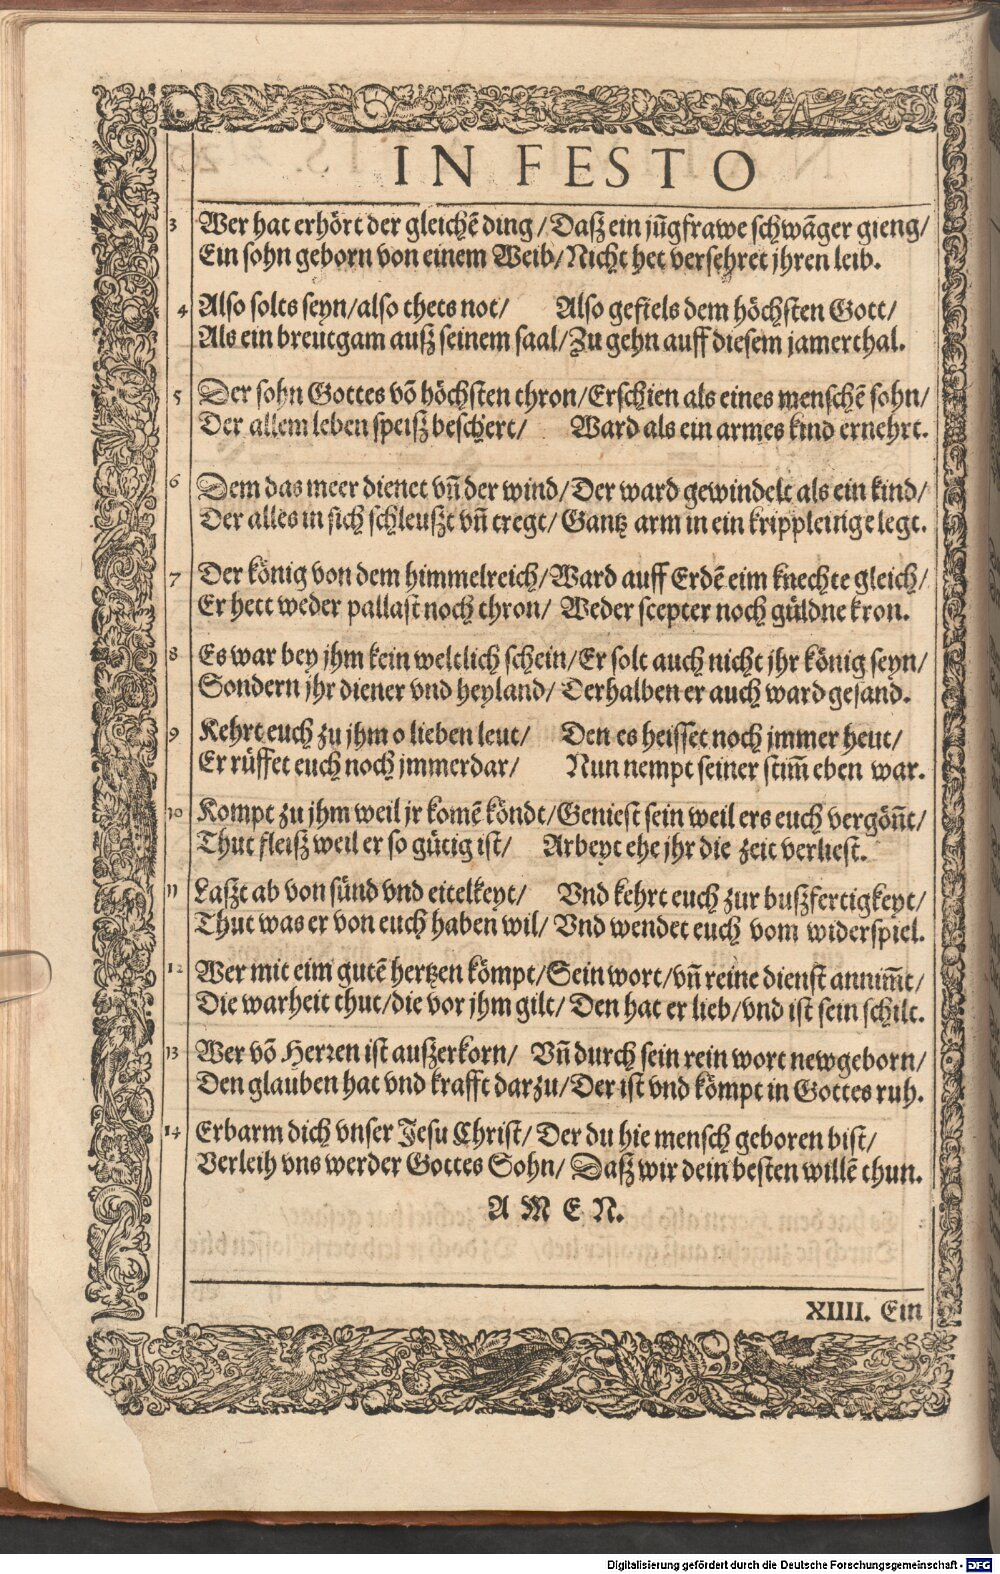 IN FESTO
3 Wer hat erhört der gleichē ding / Dasz ein jūgfrawe schwāger gieng /
Ein sohn geborn von einem Weib / Nicht het versehret jhren leib.
4 Also solts seyn / also thets not / Also gefiels dem höchsten Gott /
Als ein breutgam ausz seinem saal / Zu gehn auff diesem jamerthal.
5 Der sohn Gottes vō höchsten thron / Erschien als eines menschē sohn /
Der allem leben speisz beschert / Ward als ein armes kind ernehrt.
6 Dem das meer dienet vn̄ der wind / Der ward gewindelt als ein kind /
Der alles in sich schleuszt vn̄ tregt / Gantz arm in ein kripplein gelegt.
7 Der könig von dem himmelreich / Ward auff Erdē eim knechte gleich /
Er hett weder pallast noch thron / Weder scepter noch güldne kron.
8 Es war bey jhm kein weltlich schein / Er solt auch nicht jhr könig seyn /
Sondern jhr diener vnd heyland / Derhalben er auch ward gesand.
9 Kehrt euch zu jhm o lieben leut / Den es heisset noch jmmer heut /
Er rüffet euch noch jmmerdar / Nun nempt seiner stim̄ eben war.
10 Kompt zu jhm weil jr komē köndt / Geniest sein weil ers euch vergön̄t /
Thut fleisz weil er so gütig ist / Arbeyt ehe jhr die zeit verliest.
11 Laszt ab von sünd vnd eitelkeyt / Vnd kehrt euch zur buszfertigkeyt /
Thut was er von euch haben wil / Vnd wendet euch vom widerspiel.
12 Wer mit eim gutē hertzen kömpt / Sein wort / vn̄ reine dienst annim̄t /
Die warheit thut / die vor jhm gilt / Den hat er lieb / vnd ist sein schilt.
13 Wer vō Herren ist auszerkorn / Vn̄ durch sein rein wort newgeborn /
Den glauben hat vnd krafft darzu / Der ist vnd kömpt in Gottes ruh.
14 Erbarm dich vnser Jesu Christ / Der du hie mensch geboren bist /
Verleih vns werder Gottes Sohn / Dasz wir dein besten willē thun.
A M E N.
XIIII. Ein
Digitalisierung gefördert durch die Deutsche Forschungsgemeinschaft - DFG